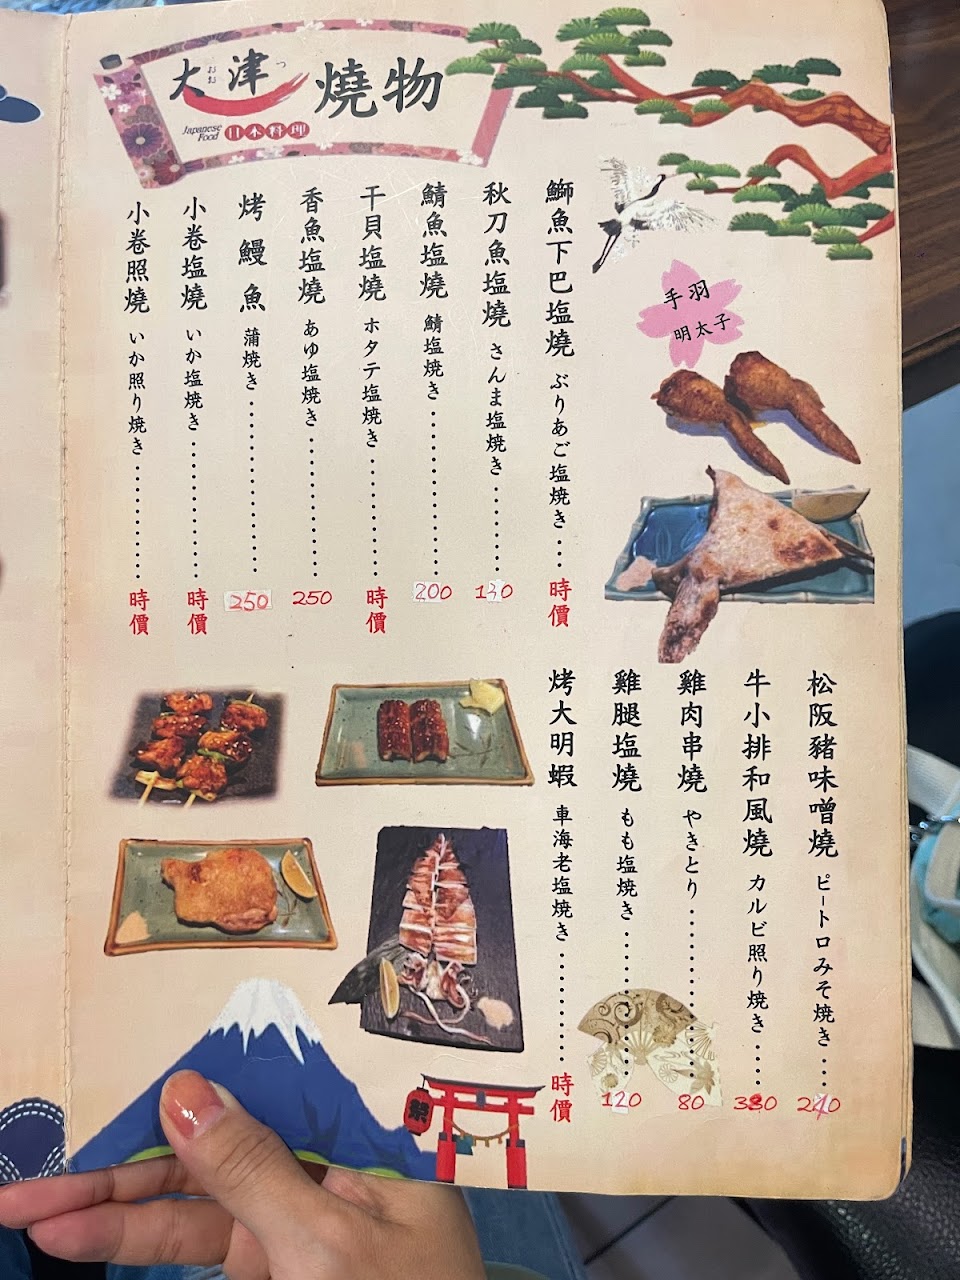 大津
おお つ
Japanese Food 日本料理
燒物
手羽
明太子
鰤魚下巴塩燒 ぶりあご塩焼き … 時價
秋刀魚塩燒 さんま塩焼き
鯖魚塩燒 鯖塩焼き 200
干貝塩燒 ホタテ塩焼き 時價
香魚塩燒 あゆ塩焼き 250
烤鰻魚 蒲焼き 250
小卷塩燒 いか塩焼き 時價
小卷照燒 いか照り焼き 時價
松阪豬味噌燒 ピートロみそ焼き
牛小排和風燒 カルビ照り焼き
雞肉串燒 やきとり 80
雞腿塩燒 もも塩焼き 120
烤大明蝦 車海老塩焼き 時價
祭